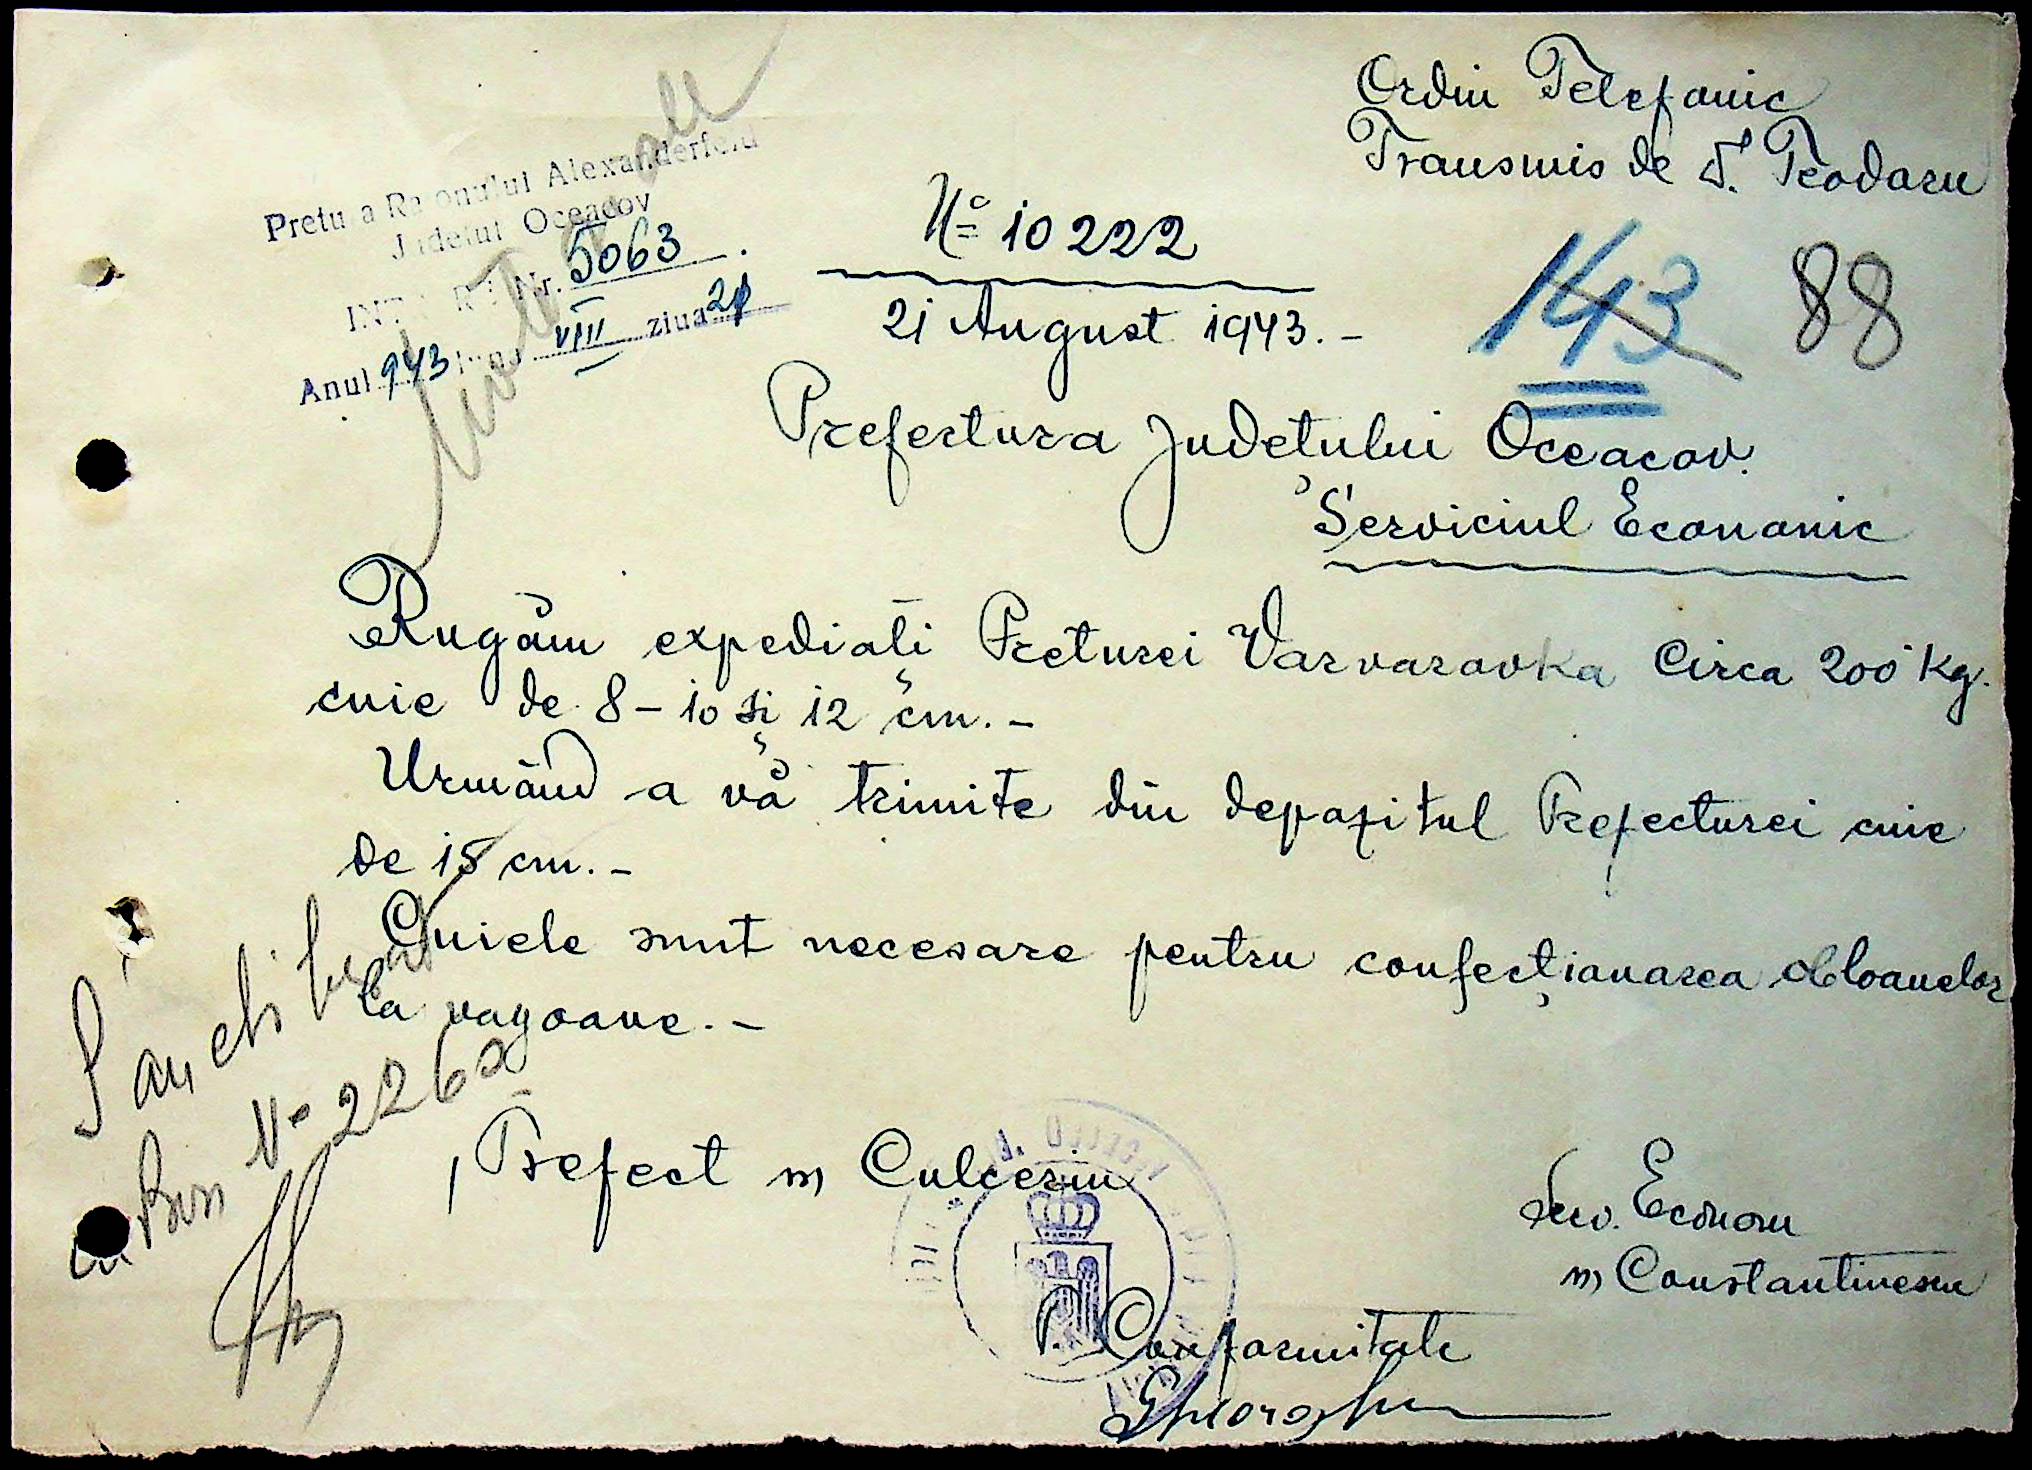 Ordin Telefonic
Transmis de D. Teodoru
Pretura Raionului Alexanderfeld
Județul Oceacov
INTRARE Nr. 5063
Anul 943 luna VIII ziua 21
Nº 10222
21 August 1943.-
143 88
Prefectura Județului Oceacov.
Serviciul Economic
Rugăm expediați Preturei Varvarovka Circa 200 kg.
cuie de 8-10 și 12 cm.-
Urmând a vă trimite din depozitul Prefecturei cuie
de 15 cm.-
Cuiele sunt necesare pentru confecționarea obloanelor
la vagoane.-
S'au eliberat
cu Bon No 2260
Prefect ss Culceriu
Serv. Econom
ss Constantinescu
P. Conformitate
Gheorghe